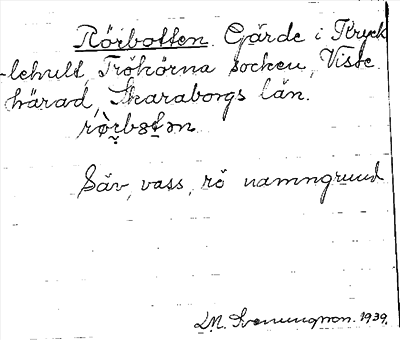 Rörbotten. Gärde i Kryck
-lehult, Tröhörna socken, Viste
härad, Skaraborgs län.
rö̀rbotən
Säv, vass, rö namngrund
L.M. Svenungsson. 1939.